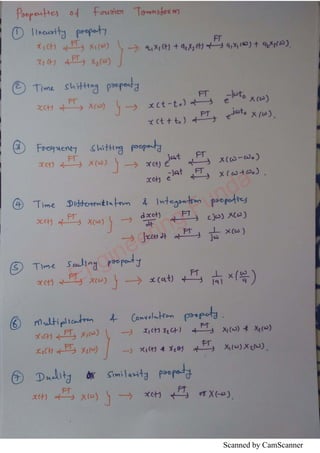 Properties of Fourier Transform
① linearity property
x₁(t) ⟷FT X₁(ω) } → a₁x₁(t) + a₂x₂(t) ⟷FT a₁X₁(ω) + a₂X₂(ω).
x₂(t) ⟷FT X₂(ω)
② Time shifting property
x(t) ⟷FT X(ω) } → x(t-t₀) ⟷FT e^-jωt₀ X(ω)
x(t+t₀) ⟷FT e^jωt₀ X(ω).
③ Frequency shifting property
x(t) ⟷FT X(ω) } → x(t) e^jωt ⟷FT X(ω-ω₀)
x(t) e^-jωt ⟷FT X(ω+ω₀).
④ Time Differentiation & Integration properties
x(t) ⟷FT X(ω) } → dx(t)/dt ⟷FT (jω) X(ω)
→ ∫x(t) dt ⟷FT 1/jω X(ω)
⑤ Time Scaling property
x(t) ⟷FT X(ω) } → x(at) ⟷FT 1/|a| X(ω/a)
⑥ Multiplication & Convolution property.
x₁(t) ⟷FT X₁(ω) } → x₁(t) x₂(t) ⟷FT X₁(ω) * X₂(ω)
x₂(t) ⟷FT X₂(ω) → x₁(t) * x₂(t) ⟷FT X₁(ω) X₂(ω).
⑦ Duality or Similarity property
x(t) ⟷FT X(ω) } → x(t) ⟷FT X(-ω).
Scanned by CamScanner